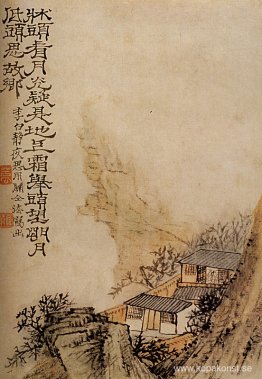 牀頭看月光疑是地上霜舉頭望朙月
低頭思故鄉
李白靜夜思用
www.kopiakonst.se